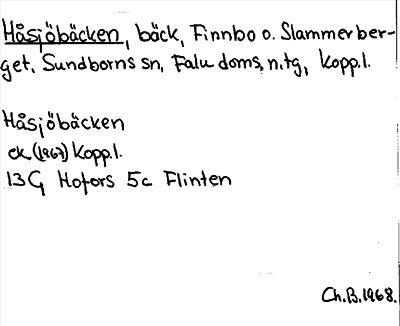 Håsjöbäcken, bäck, Finnbo o. Slammerber-
get, Sundborns sn, Falu doms. n. tg, Kopp. l.
Håsjöbäcken
ek (1967) Kopp. l.
13G Hofors 5c Flinten
Ch. B. 1968.